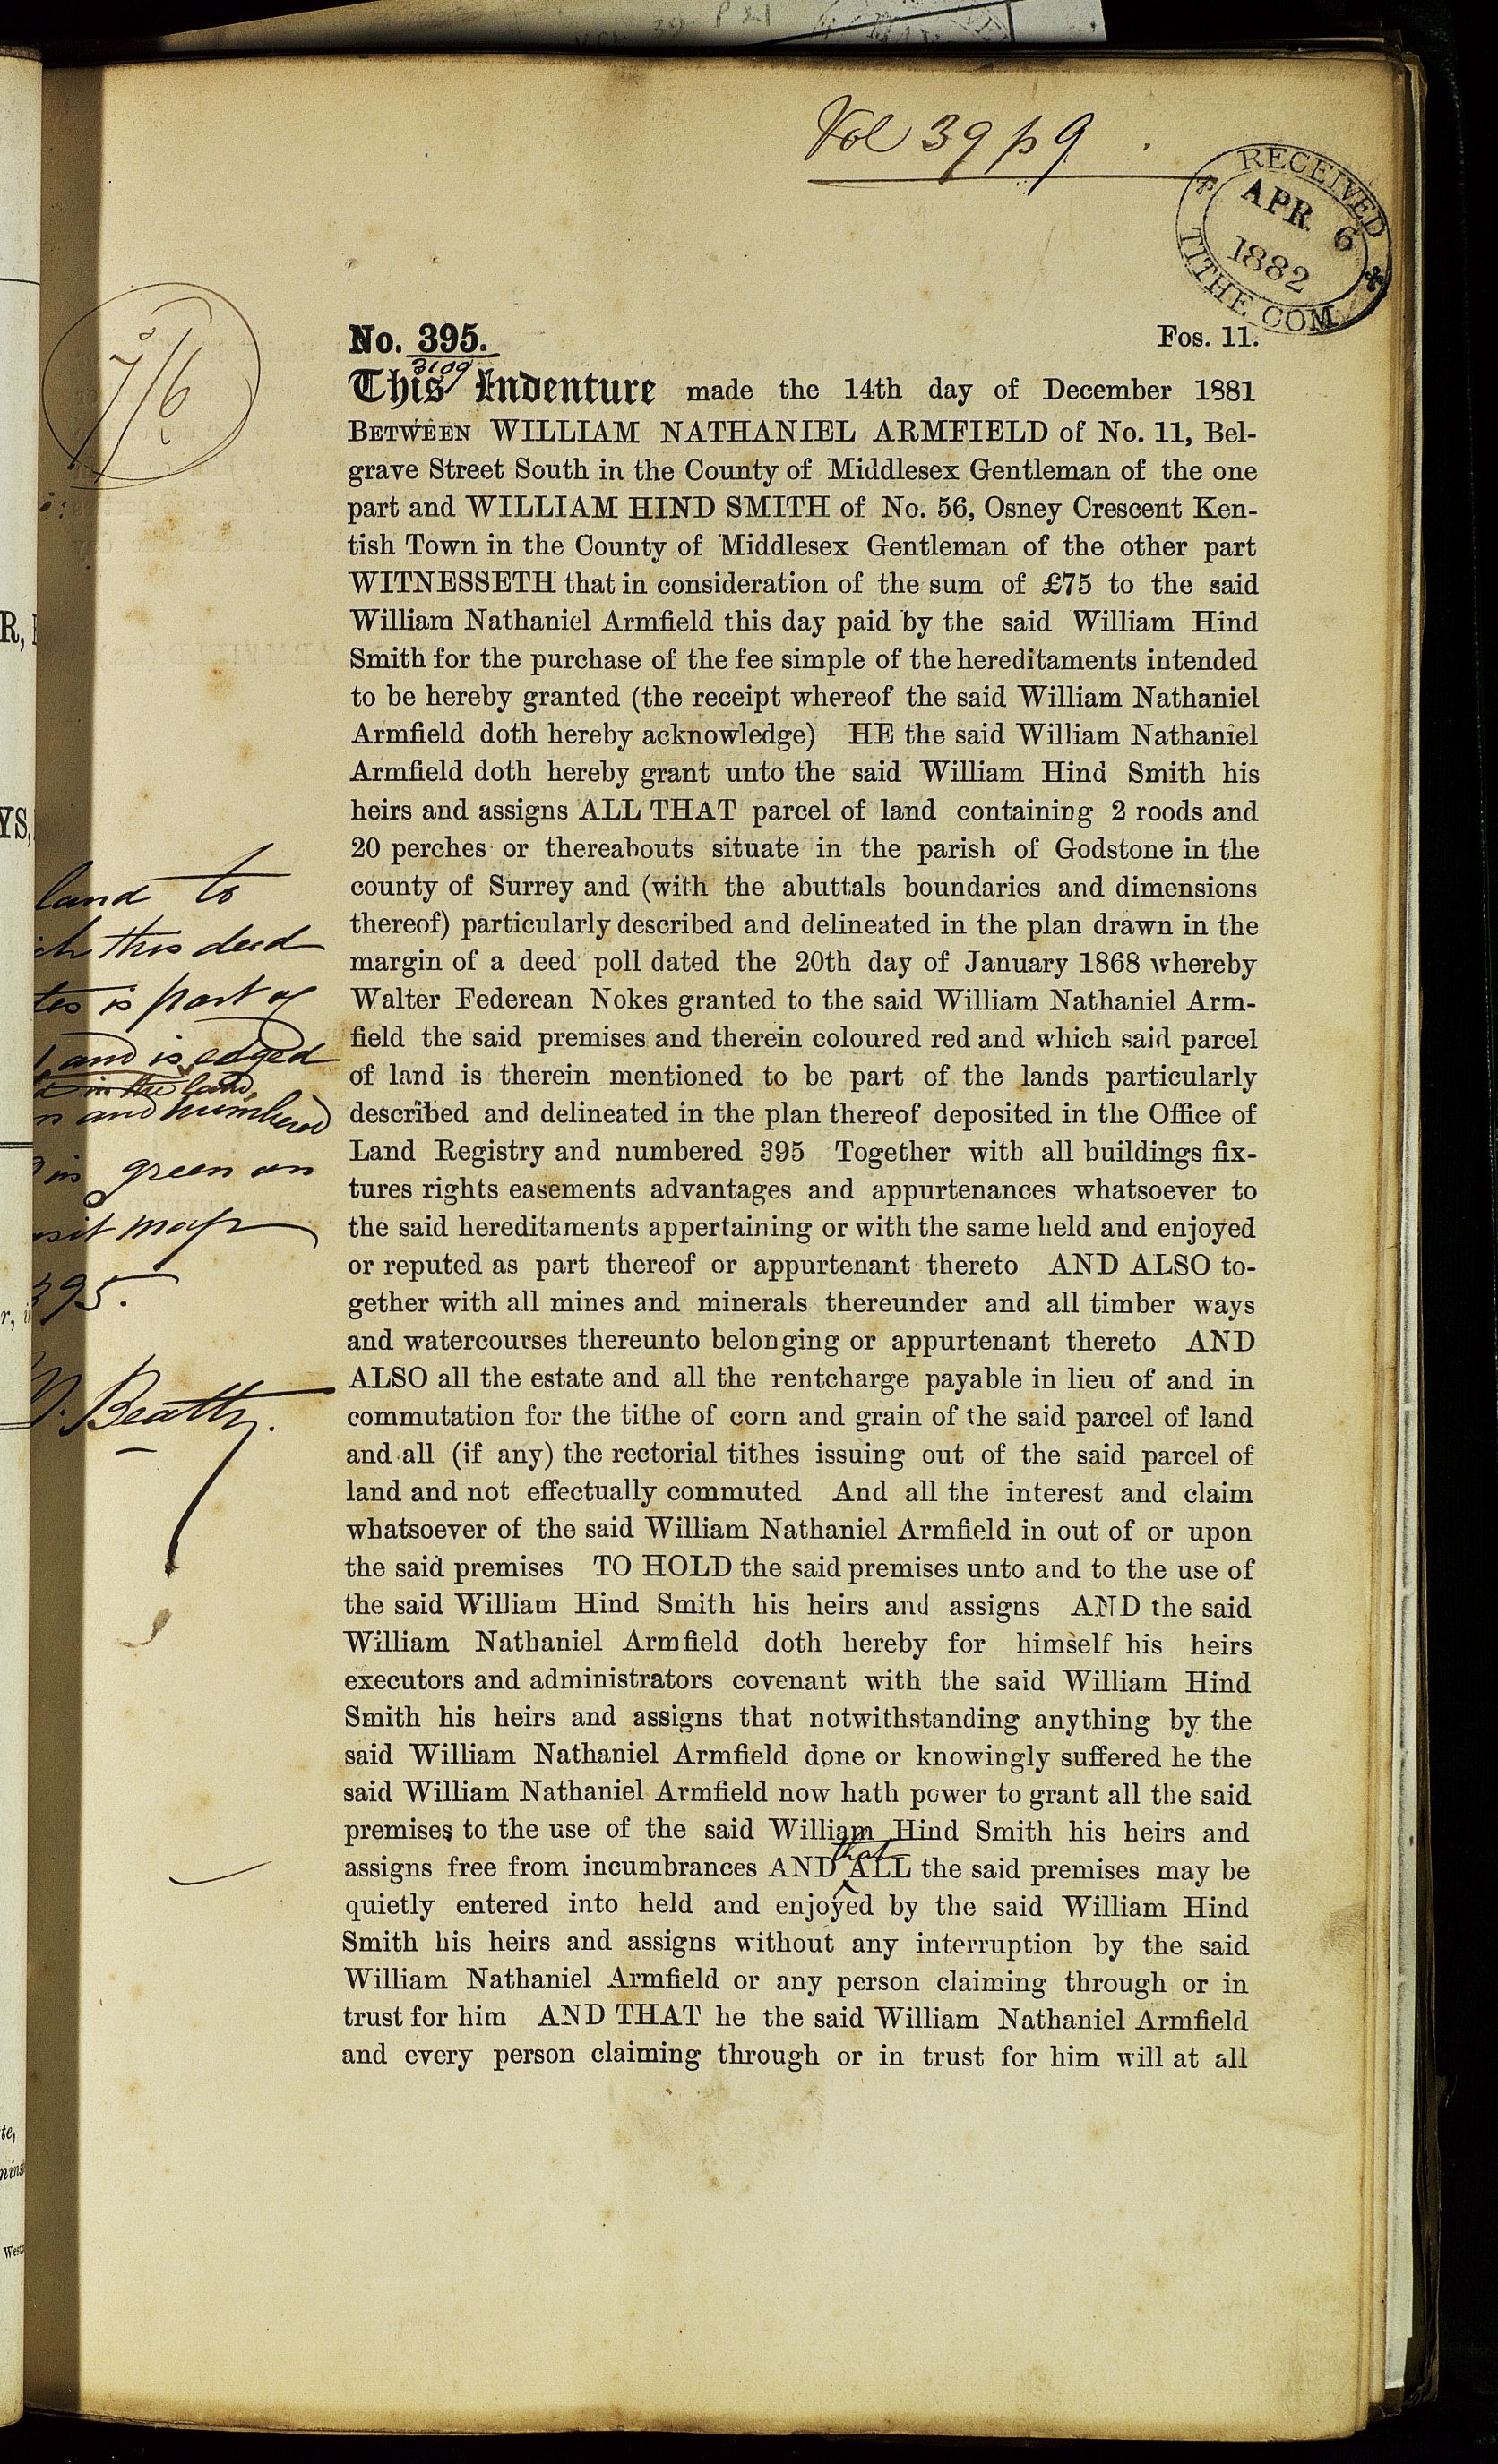 Vol 39 p 9
RECEIVED
APR. 6
1882
TITHE COM
7/6
No. 395.
3109
Fos. 11.
This Indenture made the 14th day of December 1881
BETWEEN WILLIAM NATHANIEL ARMFIELD of No. 11, Bel-
grave Street South in the County of Middlesex Gentleman of the one
part and WILLIAM HIND SMITH of No. 56, Osney Crescent Ken-
tish Town in the County of Middlesex Gentleman of the other part
WITNESSETH that in consideration of the sum of £75 to the said
William Nathaniel Armfield this day paid by the said William Hind
Smith for the purchase of the fee simple of the hereditaments intended
to be hereby granted (the receipt whereof the said William Nathaniel
Armfield doth hereby acknowledge) HE the said William Nathaniel
Armfield doth hereby grant unto the said William Hind Smith his
heirs and assigns ALL THAT parcel of land containing 2 roods and
20 perches or thereabouts situate in the parish of Godstone in the
county of Surrey and (with the abuttals boundaries and dimensions
thereof) particularly described and delineated in the plan drawn in the
margin of a deed poll dated the 20th day of January 1868 whereby
Walter Federean Nokes granted to the said William Nathaniel Arm-
field the said premises and therein coloured red and which said parcel
of land is therein mentioned to be part of the lands particularly
described and delineated in the plan thereof deposited in the Office of
Land Registry and numbered 395 Together with all buildings fix-
tures rights easements advantages and appurtenances whatsoever to
the said hereditaments appertaining or with the same held and enjoyed
or reputed as part thereof or appurtenant thereto AND ALSO to-
gether with all mines and minerals thereunder and all timber ways
and watercourses thereunto belonging or appurtenant thereto AND
ALSO all the estate and all the rentcharge payable in lieu of and in
commutation for the tithe of corn and grain of the said parcel of land
and all (if any) the rectorial tithes issuing out of the said parcel of
land and not effectually commuted And all the interest and claim
whatsoever of the said William Nathaniel Armfield in out of or upon
the said premises TO HOLD the said premises unto and to the use of
the said William Hind Smith his heirs and assigns AND the said
William Nathaniel Armfield doth hereby for himself his heirs
executors and administrators covenant with the said William Hind
Smith his heirs and assigns that notwithstanding anything by the
said William Nathaniel Armfield done or knowingly suffered he the
said William Nathaniel Armfield now hath power to grant all the said
premises to the use of the said William Hind Smith his heirs and
assigns free from incumbrances AND that ALL the said premises may be
quietly entered into held and enjoyed by the said William Hind
Smith his heirs and assigns without any interruption by the said
William Nathaniel Armfield or any person claiming through or in
trust for him AND THAT he the said William Nathaniel Armfield
and every person claiming through or in trust for him will at all
land to
this deed
is part of
and is edged
in the land,
and numbered
in green on
map
395.
Beatty.